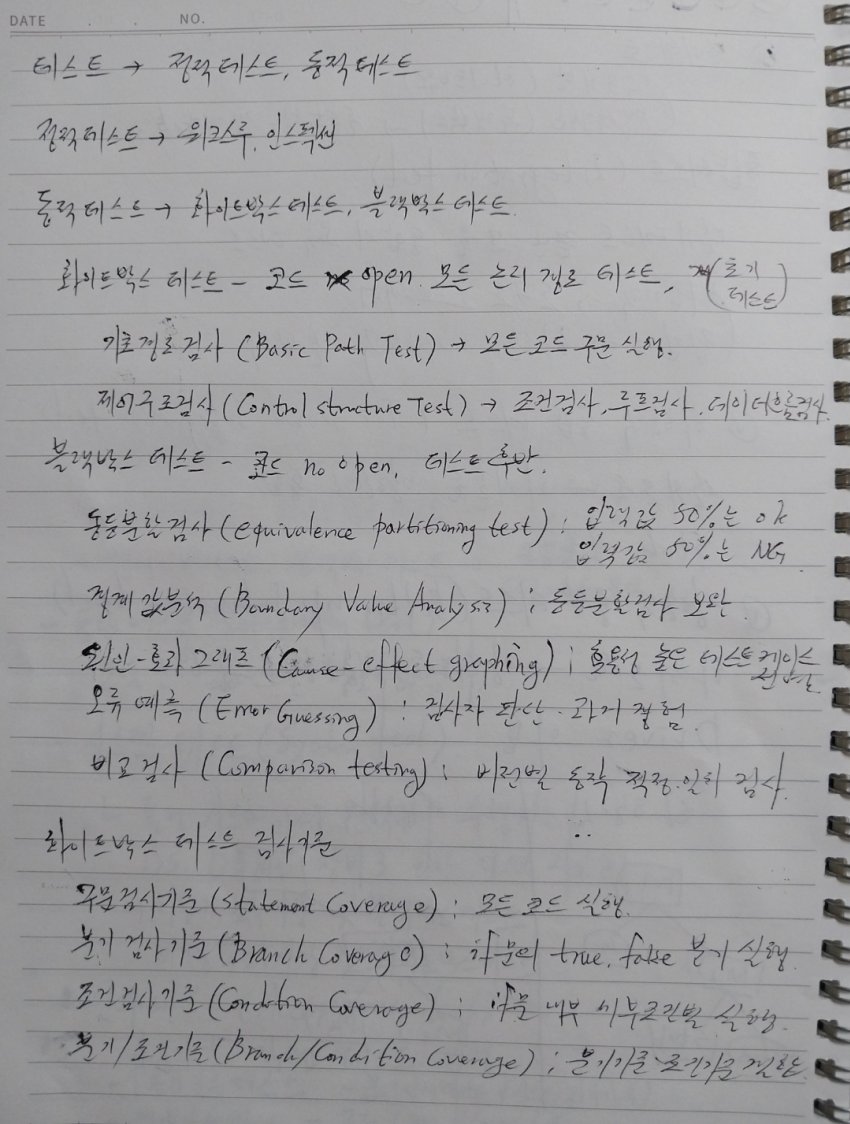 DATE . . NO.
테스트 → 정적테스트, 동적테스트
정적테스트 → 워크스루, 인스펙션
동적테스트 → 화이트박스테스트, 블랙박스테스트.
화이트박스 테스트 - 코드 open. 모든 논리 경로 테스트, (초기
테스트)
기초경로검사 (Basic Path Test) → 모든코드 구문 실행.
제어구조검사 (Control structure Test) → 조건검사, 루프검사, 데이터흐름검사.
블랙박스 테스트 - 코드 no open, 테스트후반.
동등분할검사 (equivalence partitioning test) : 입력값 50%는 ok
입력값 50%는 NG.
경계값분석 (Boundary Value Analysis) ; 동등분할검사 보완.
원인-효과 그래프 (Cause-effect graphing) ; 효용성 높은 테스트케이스
선별
오류 예측 (Error Guessing) : 검사자 판단. 과거 경험.
비교검사 (Comparison testing) : 버전별 동작 적정.일치 검사.
화이트박스 테스트 검사기준
구문검사기준 (Statement Coverage) : 모든 코드 실행.
분기 검사기준 (Branch Coverage) : if문의 true, false 분기 실행.
조건검사기준 (Condition Coverage) ; if문 내부 세부조건별 실행.
분기/조건기준 (Branch/Condition Coverage) ; 분기기준·조건기준 결합.